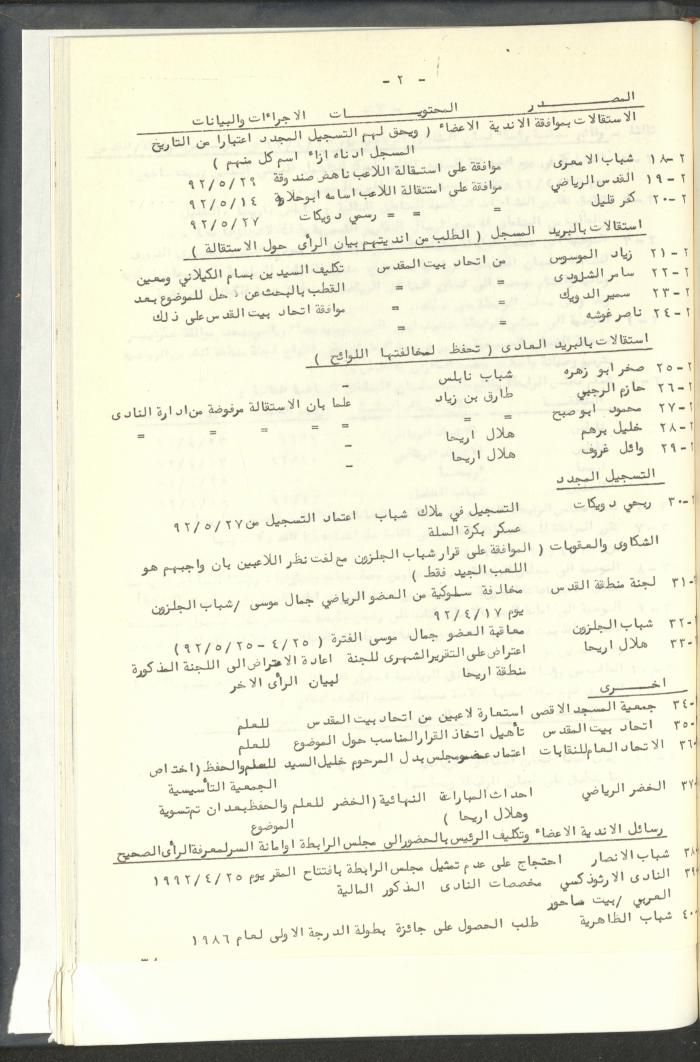 - ٢ -
المصـــــدر المحتويـــــات الاجراءات والبيانات
الاستقالات بموافقة الاندية الاعضاء ( ويحق لهم التسجيل المجدد اعتبارا من التاريخ
المسجل ادناه ازاء اسم كل منهم )
٢-١٨ شباب الامعرى موافقة على استقالة اللاعب ناهض صندوقة ٩٢/٥/٢٩
٢-١٩ القدس الرياضي موافقة على استتقالة اللاعب اسامه ابوحلاوة ٩٢/٥/١٤
٢-٢٠ كفر قليل = = = رسمي دويكات ٩٢/٥/٢٧
استقالات بالبريد المسجل ( الطلب من انديتهم بيان الرأى حول الاستقالة )
٢-٢١ زياد الموسوس من اتحاد بيت المقدس تكليف السيدين بسام الكيلاني ومعين
٢-٢٢ سامر الشلودى = = القطب بالبحث عن حل للموضوع بعد
٢-٢٣ سمير الدويك = = موافقة اتحاد بيت القدس على ذلك
٢-٢٤ ناصر غوشه = =
استقالات بالبريد العادى ( تحفظ لمخالفتها اللوائح )
٢-٢٥ صخر ابو زهره شباب نابلس -
٢-٢٦ حازم الرجبي طارق بن زياد علما بان الاستقالة مرفوضة من ادارة النادى
٢-٢٧ محمود ابو صبح = = = = = = = =
٢-٢٨ خليل برهم هلال اريحا -
٢-٢٩ وائل غروف هلال اريحا -
التسجيل المجدد
٢-٣٠ ربحي دويكات التسجيل في ملاك شباب اعتماد التسجيل من ٩٢/٥/٢٧
عسكر بكرة السلة
الشكاوى والعقوبات ( الموافقة على قرار شباب الجلزون مع لفت نظر اللاعبين بان واجبهم هو
اللعب الجيد فقط )
٢-٣١ لجنة منطقة القدس مخالفة سلوكية من العضو الرياضي جمال موسى /شباب الجلزون
يوم ٩٢/٤/١٧
٢-٣٢ شباب الجلزون معاقبة العضو جمال موسى الفترة ( ٤/٢٥ - ٩٢/٥/٢٥)
٢-٣٣ هلال اريحا اعتراض على التقرير الشهرى للجنة اعادة الاعتراض الى اللجنة المذكورة
منطقة اريحا لبيان الرأى الاخر
اخـــــرى
-٣٤ جمعية المسجد الاقصى استعارة لاعبين من اتحاد بيت المقدس للعلم
-٣٥ اتحاد بيت المقدس تأهيل اتخاذ القرار المناسب حول الموضوع للعلم
-٣٦ الاتحاد العام للنقابات اعتماد عضو مجلس بدل المرحوم خليل السيد للعلم والحفظ (اختصاص
الجمعية التأسيسية
-٣٧ الخضر الرياضي احداث المباراة النهائية (الخضر للعلم والحفظ بعد ان تم تسوية
وهلال اريحا ) الموضوع
رسائل الاندية الاعضاء وتكليف الرئيس بالحضور الى مجلس الرابطة اوامانة السر لمعرفة الرأى الصحيح
-٣٨ شباب الانصار احتجاج على عدم تمثيل مجلس الرابطة بافتتاح المقر يوم ١٩٩٢/٤/٢٥
-٣٩ النادى الارثوذكسي مخصصات النادى المذكور المالية
العربي /بيت ساحور
-٤٠ شباب الظاهرية طلب الحصول على جائزة بطولة الدرجة الاولى لعام ١٩٨٦